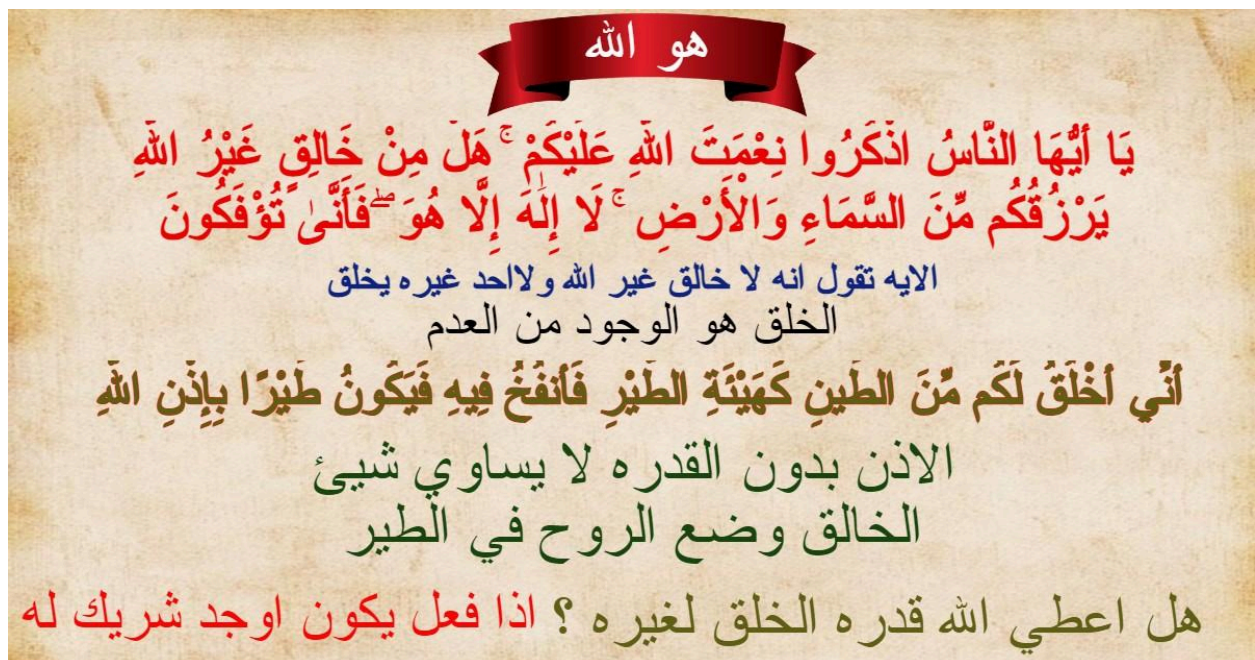 هو الله
يَا أَيُّهَا النَّاسُ اذْكُرُوا نِعْمَتَ اللَّهِ عَلَيْكُمْ ۚ هَلْ مِنْ خَالِقٍ غَيْرُ اللَّهِ
يَرْزُقُكُم مِّنَ السَّمَاءِ وَالْأَرْضِ ۚ لَا إِلَٰهَ إِلَّا هُوَ ۖ فَأَنَّىٰ تُؤْفَكُونَ
الايه تقول انه لا خالق غير الله ولااحد غيره يخلق
الخلق هو الوجود من العدم
أَنِّي أَخْلُقُ لَكُم مِّنَ الطِّينِ كَهَيْئَةِ الطَّيْرِ فَأَنفُخُ فِيهِ فَيَكُونُ طَيْرًا بِإِذْنِ اللَّهِ
الاذن بدون القدره لا يساوي شيئ
الخالق وضع الروح في الطير
هل اعطي الله قدره الخلق لغيره ؟ اذا فعل يكون اوجد شريك له